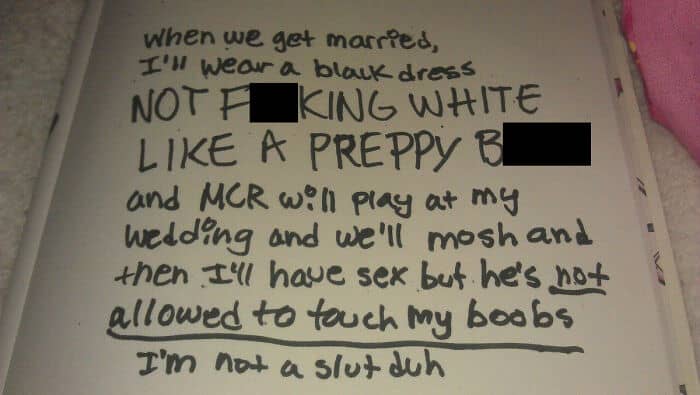 When we get married,
I'll wear a black dress
NOT F KING WHITE
LIKE A PREPPY B
and MCR will play at my
wedding and we'll mosh and
then I'll have sex but he's not
allowed to touch my boobs
I'm not a slut duh